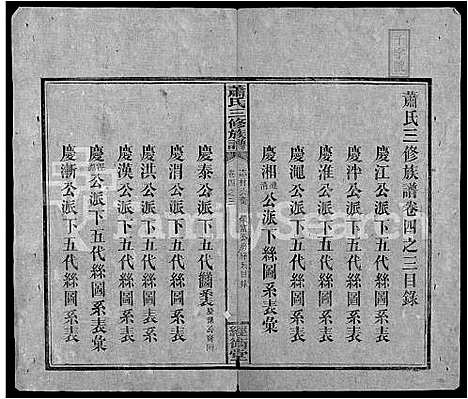 蕭氏三修族譜卷四之三目錄
慶江公派下五代絲圖系表彙
慶泮公派下五代絲圖系表彙
慶淮公派下五代絲圖系表彙
慶澠公派下五代絲圖系表彙
慶湘公派下絲圖系表彙
蕭氏三修族譜
卷四之三
目錄
經術堂
慶泰公派下五代絲圖系表
慶渭公派下五代絲圖系表彙
慶洪公派下五代絲圖系表
慶漢公派下五代絲圖系表彙
慶公派下五代絲圖系表彙
慶漸公派下五代絲圖系表彙
FamilySearch